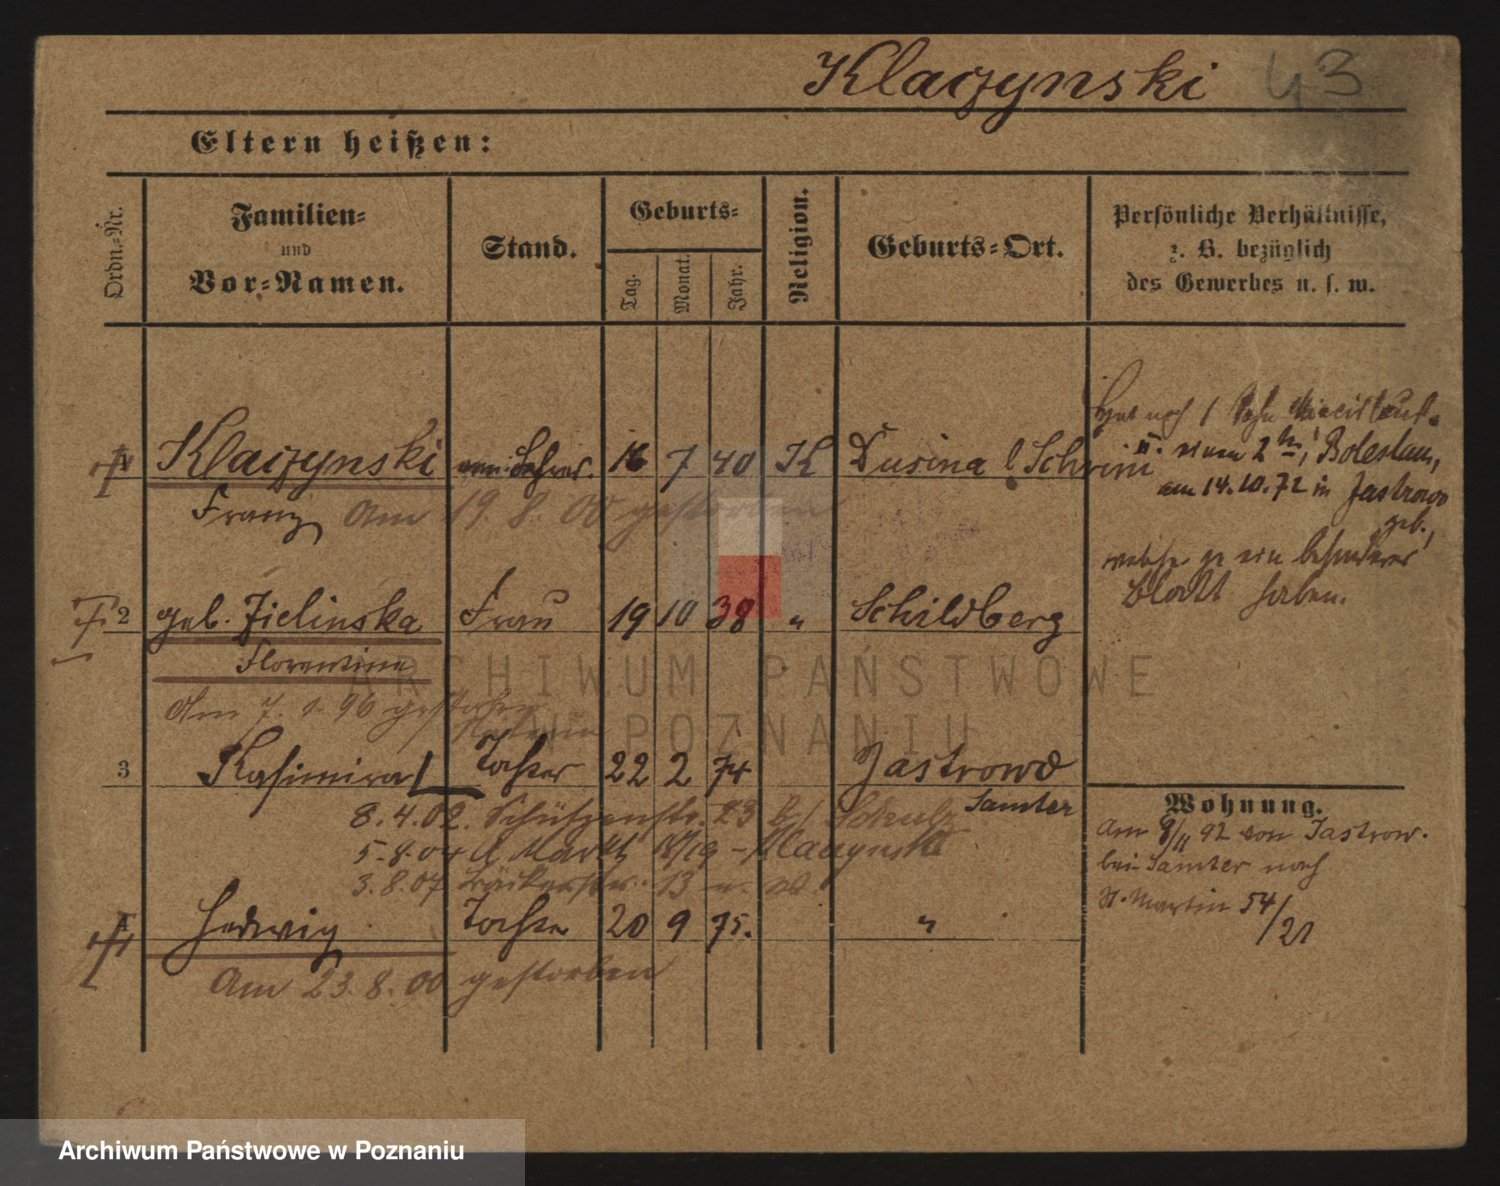 Klaczynski 43
Eltern heißen:
Ordn.-Nr.
Familien-
und
Vor-Namen.
Stand.
Geburts-
Tag.
Monat.
Jahr.
Religion.
Geburts-Ort.
Persönliche Verhältnisse,
z. B. bezüglich
des Gewerbes u. s. w.
Klaczynski Lehrer. 16 7 40 K Dusina Schrim
Franz Am 19. 8. 00 gestorben
Hat noch 1 Sohn
u. einen 2ten, Boleslaus,
am 14.10.72 in Jastrowo
geb.,
welche je ein besonderes
Blatt haben.
2 geb. Zielinska Frau 19 10 38 " Schildberg
Florentina
Am 7. 1. 96 gestorben
3 Kasimira Tochter 22 2 74 Jastrowo
Samter
8.4.02. Schützenstr. 23 b/ Schulz
5.8.04 Markt 18/19 - Klaczynski
3.8.07 Bäckerstr. 13
Hedwig Tochter 20 9 75. "
Am 23.8.00 gestorben
Wohnung.
Am 9/11 92 von Jastrow.
bei Samter nach
St. Martin 54/21
ARCHIWUM PAŃSTWOWE
W POZNANIU
Archiwum Państwowe w Poznaniu